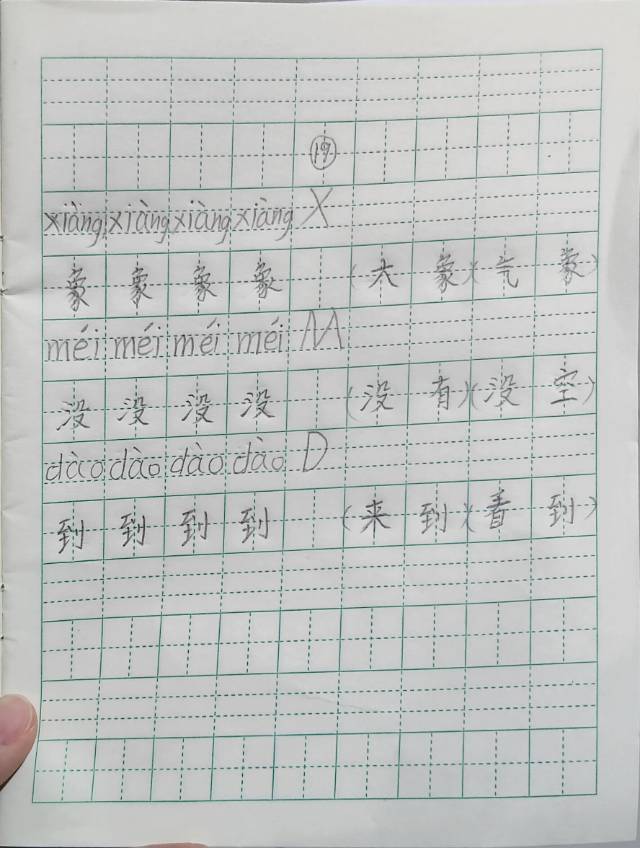 19
xiàng xiàng xiàng xiàng X
象 象 象 象 (大 象)(气 象)
méi méi méi méi M
没 没 没 没 (没 有)(没 空)
dào dào dào dào D
到 到 到 到 (来 到)(看 到)